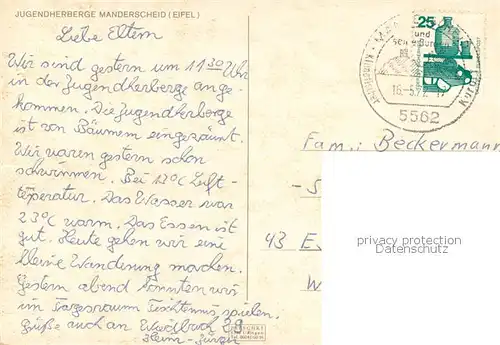 JUGENDHERBERGE MANDERSCHEID (EIFEL)
Liebe Eltern
Wir sind gestern um 11 30 Uhr
in der Jugendherberge ange-
kommen. Die Jugendherberge
ist von Bäumen eingezäunt.
Wir waren gestern schon
schwimmen. Bei 13°C Luft-
temperatur. Das Wasser war
23°C warm. Das Essen ist
gut. Heute gehen wir eine
kleine Wanderung machen.
Gestern abend konnten wir
im Tagesraum Tischtennis spielen.
Grüße auch an
Heinz-Jürgen
25
und
5562
Fam.: Beckermann
43 E
W
privacy protection
Datenschutz